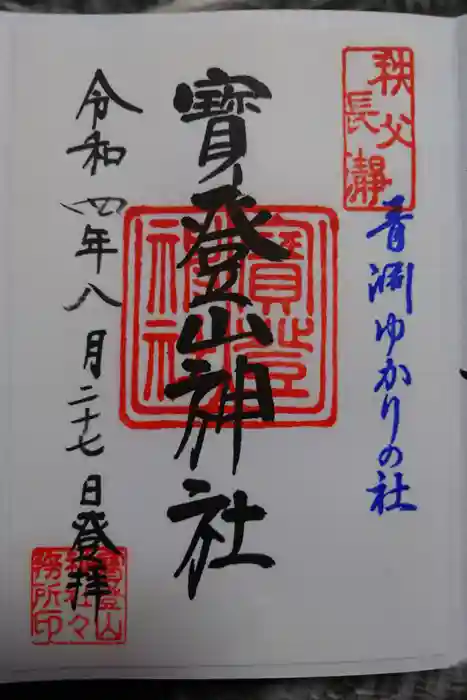 秩父
長瀞
青淵ゆかりの社
寳登山神社
寳登
神社
令和四年八月二十七日登拝
寳登山
神社々
務所印